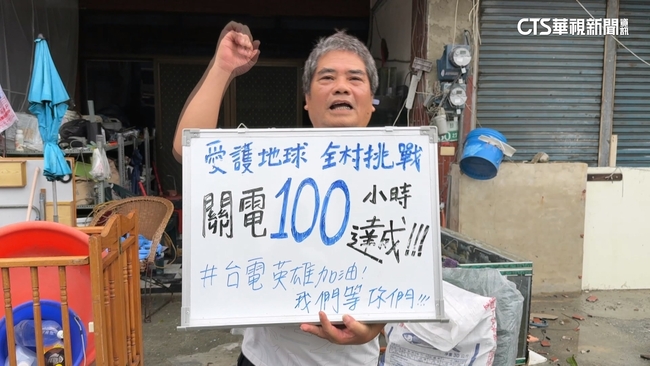 CTS華視新聞資訊
愛護地球 全村挑戰
關電100小時
達成!!!
#台電英雄加油!
我們等你們!!!